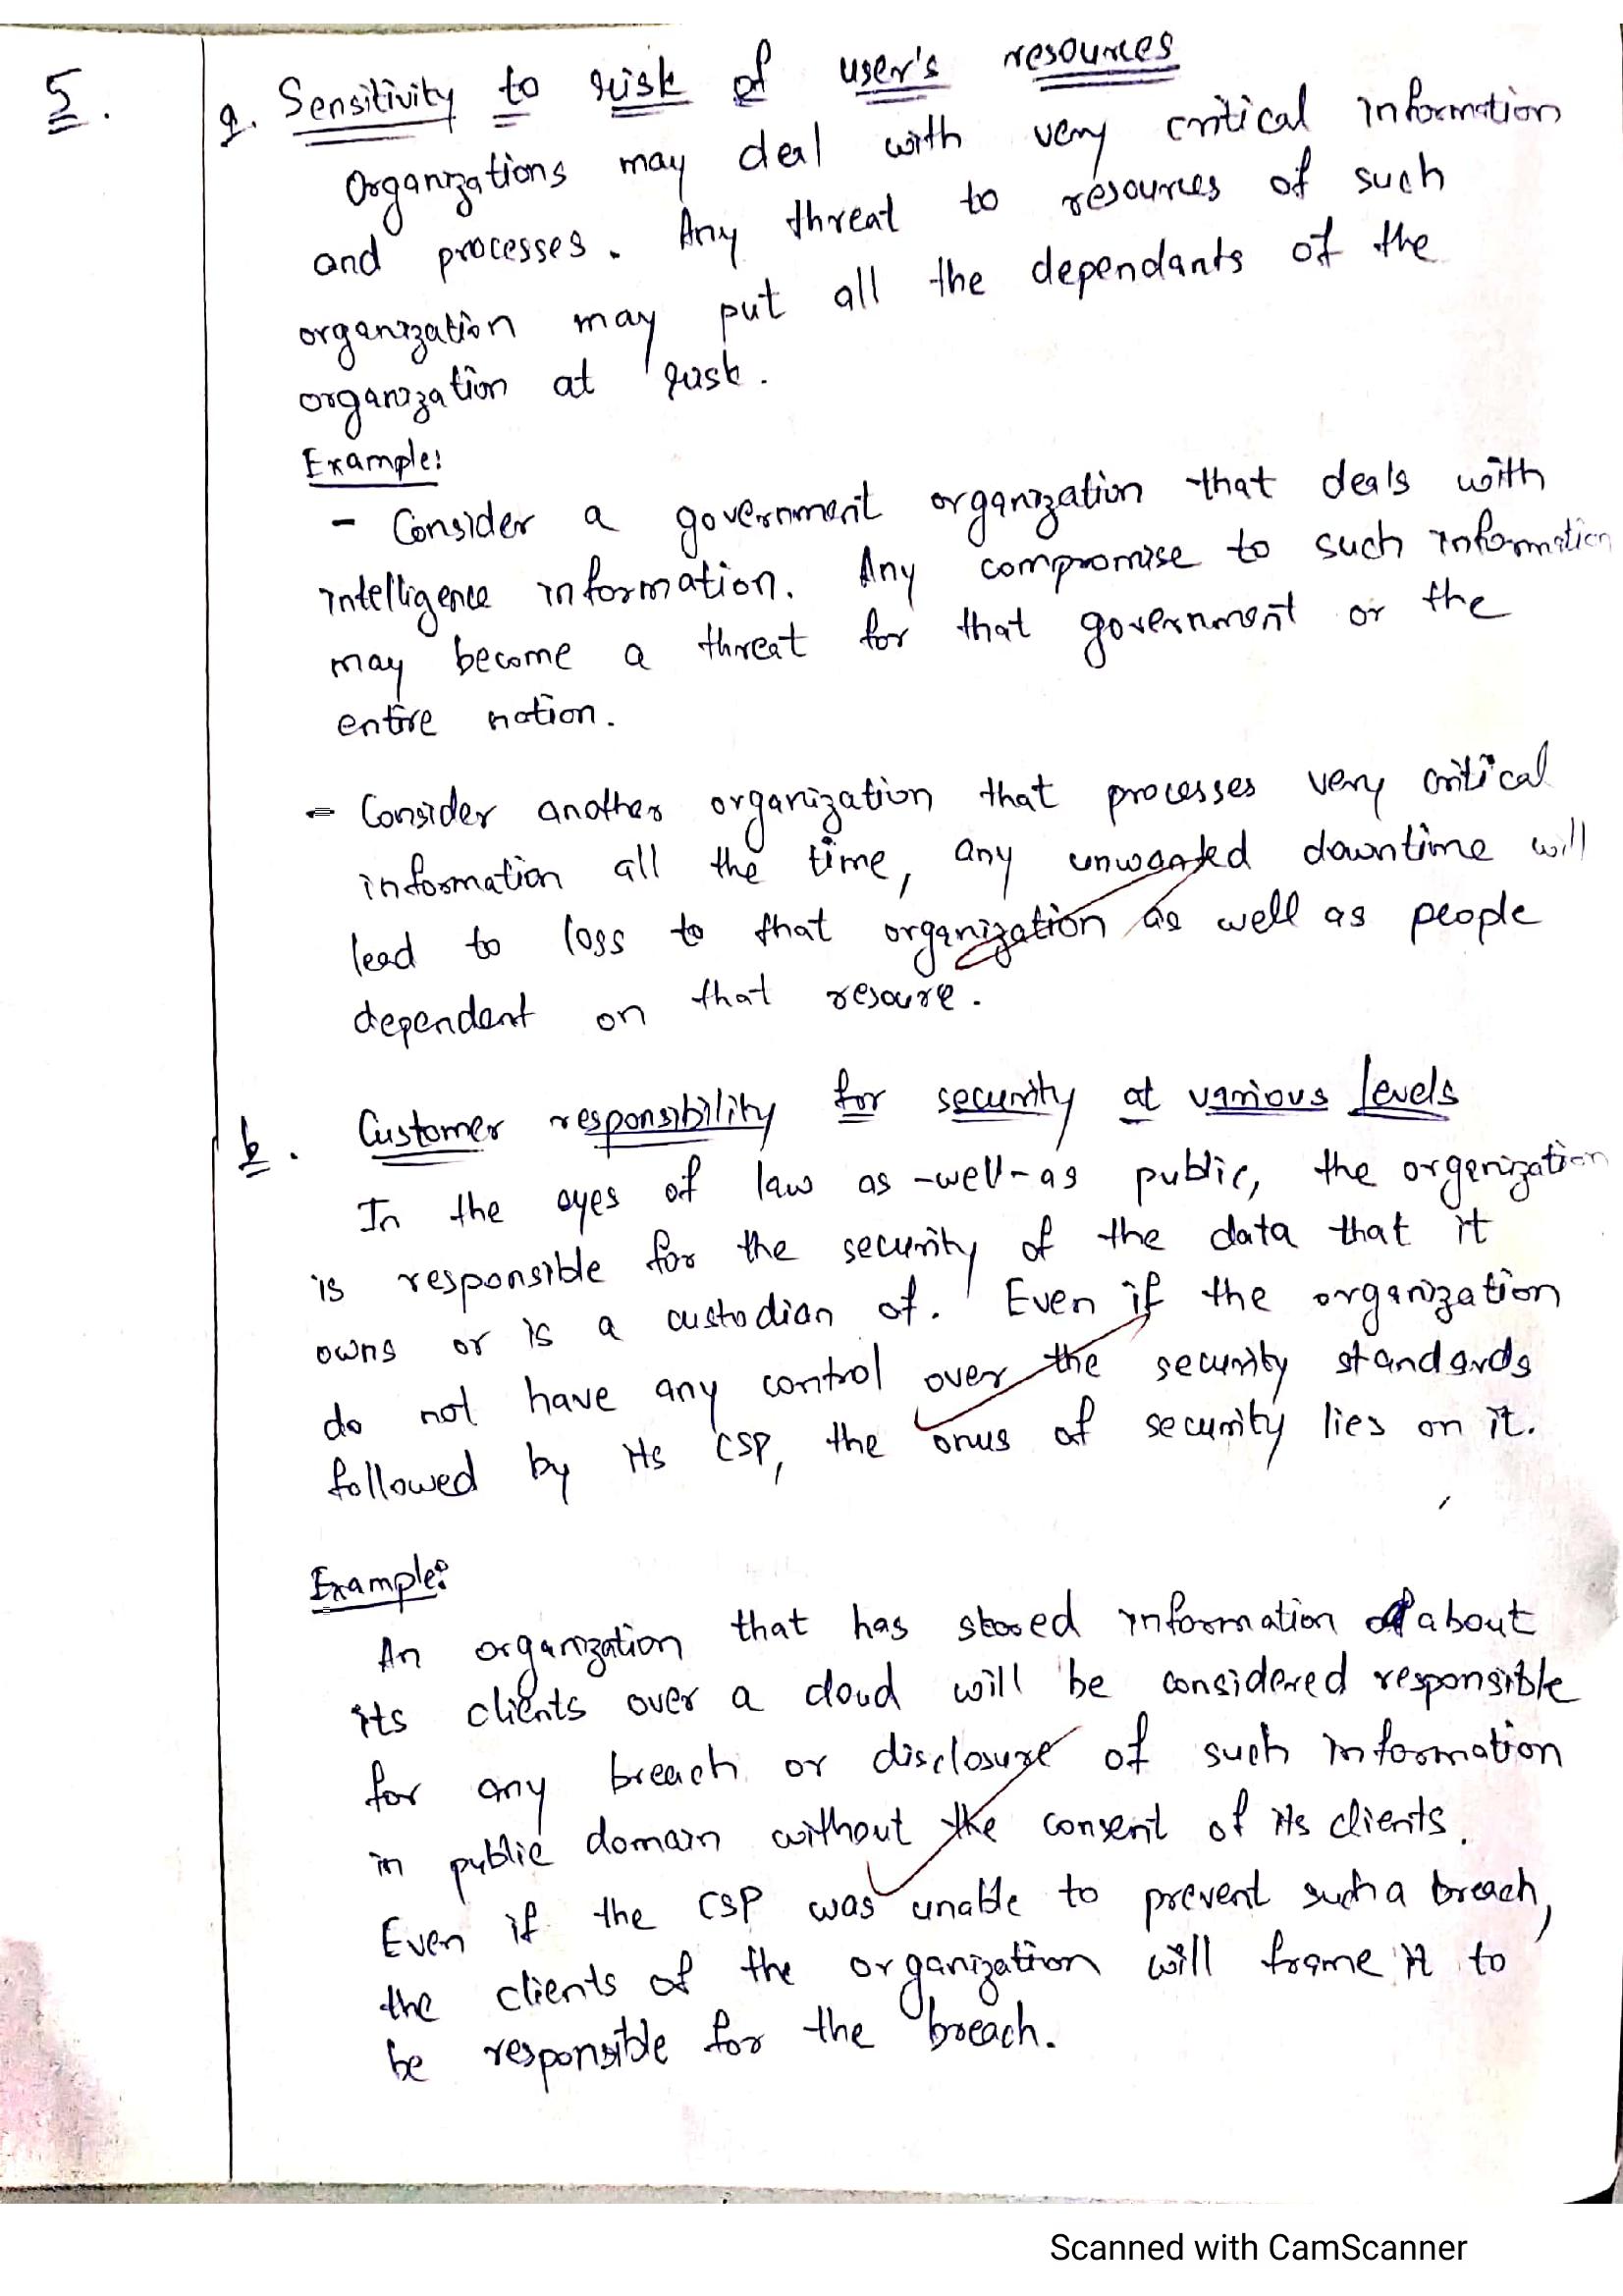 5.
a. Sensitivity to risk of user's resources
Organizations may deal with very critical information
and processes. Any threat to resources of such
organization may put all the dependants of the
organization at risk.
Example:
- Consider a government organization that deals with
intelligence information. Any compromise to such information
may become a threat for that government or the
entire nation.
- Consider another organization that processes very critical
information all the time, any unwanted downtime will
lead to loss to that organization as well as people
dependent on that resoure.
b. Customer responsibility for security at various levels
In the eyes of law as-well-as public, the organization
is responsible for the security of the data that it
owns or is a custodian of. Even if the organization
do not have any control over the security standards
followed by its CSP, the onus of security lies on it.
Example:
An organization that has stored information about
its clients over a cloud will be considered responsible
for any breach or disclosure of such information
in public domain without the consent of its clients.
Even if the CSP was unable to prevent such a breach,
the clients of the organization will frame it to
be responsible for the breach.
Scanned with CamScanner